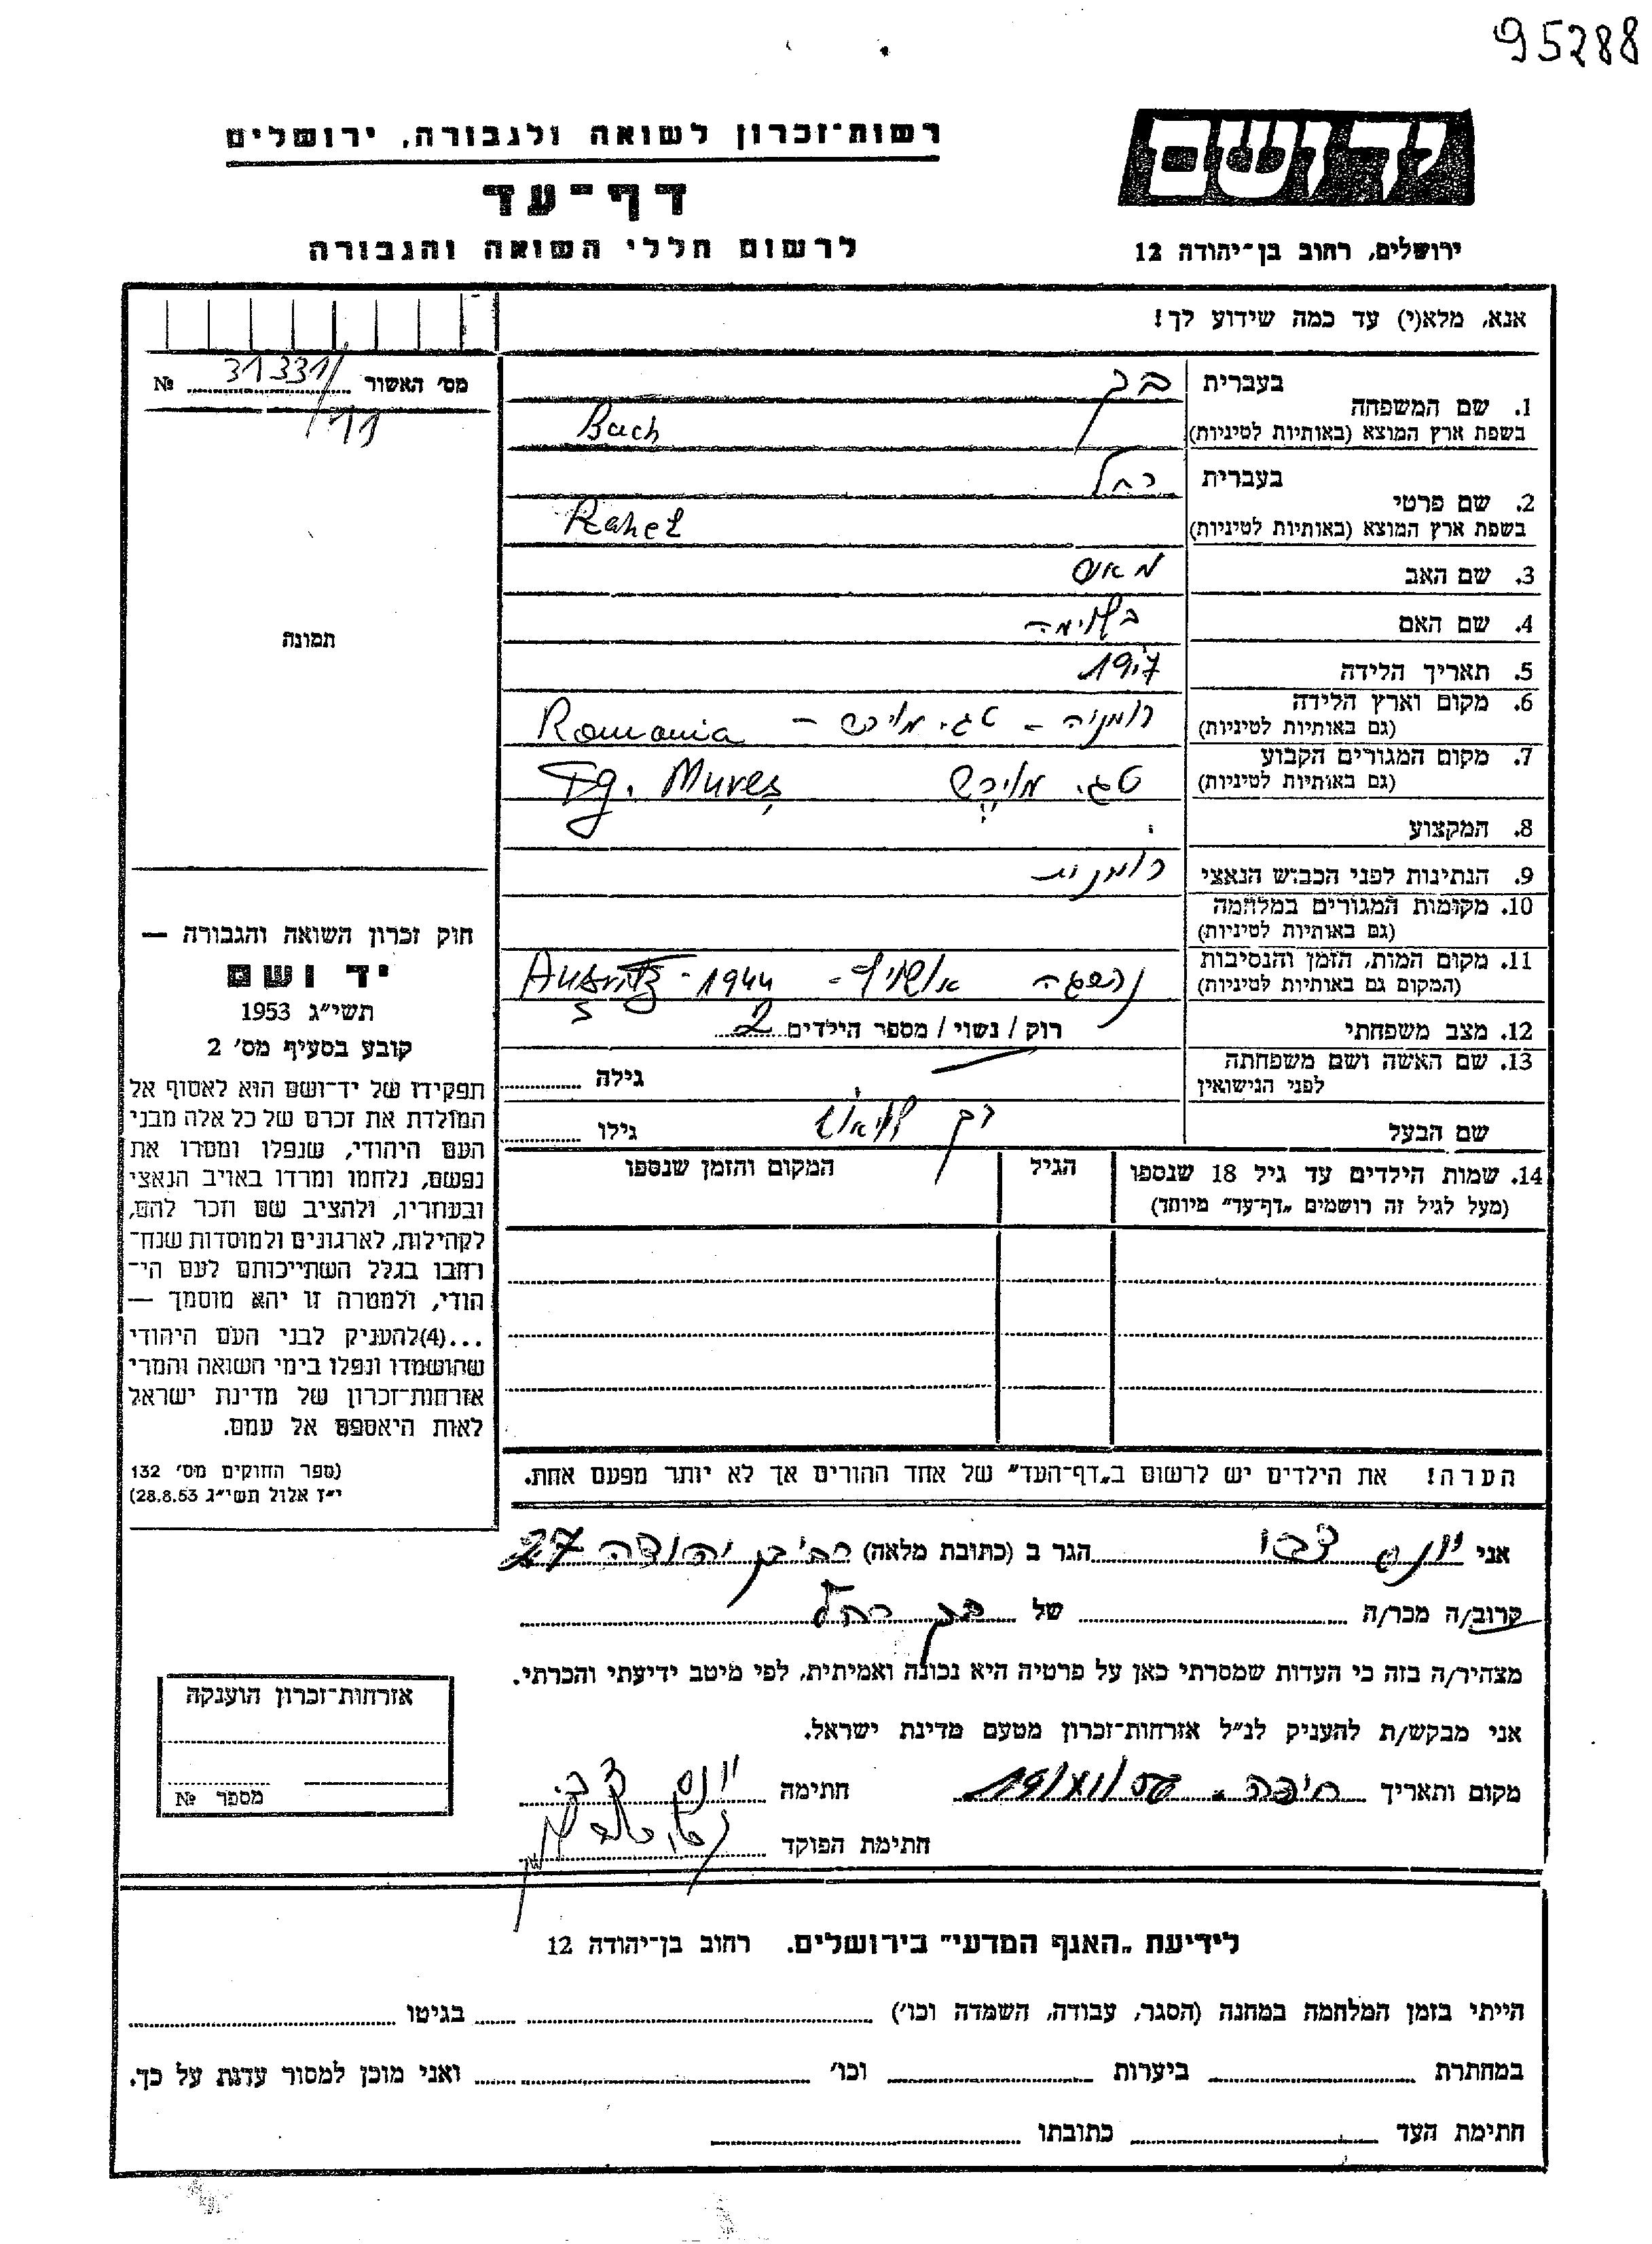 95288
רשות־זכרון לשואה ולגבורה, ירושלים
דף־עד
לרשום חללי השואה והגבורה
יד ושם
ירושלים, רחוב בן־יהודה 12
אנא, מלא(י) עד כמה שידוע לך!
מס׳ האשור 31331/ №
11
1. שם המשפחה
בעברית בך
בשפת ארץ המוצא (באותיות לטיניות) Bach
2. שם פרטי
בעברית רחל
בשפת ארץ המוצא (באותיות לטיניות) Rahel
3. שם האב
4. שם האם
5. תאריך הלידה
6. מקום וארץ הלידה רומניה - טג. מורש - Romania
(גם באותיות לטיניות)
7. מקום המגורים הקבוע טג. מורש Tg. Mureş
(גם באותיות לטיניות)
8. המקצוע
9. הנתינות לפני הכבוש הנאצי רומנית
10. מקומות המגורים במלחמה
(גם באותיות לטיניות)
11. מקום המות, הזמן והנסיבות אושויץ - 1944 -
(המקום גם באותיות לטיניות)
12. מצב משפחתי רוק / נשוי / מספר הילדים 2
13. שם האשה ושם משפחתה גילה
לפני הנישואין
שם הבעל גילו
14. שמות הילדים עד גיל 18 שנספו הגיל המקום והזמן שנספו
(מעל לגיל זה רושמים „דף־עד״ מיוחד)
הערה! את הילדים יש לרשום ב„דף־העד״ של אחד ההורים אך לא יותר מפעם אחת.
תמונה
חוק זכרון השואה והגבורה —
יד ושם
תשי״ג 1953
קובע בסעיף מס׳ 2
תפקידו של יד־ושם הוא לאסוף אל
המולדת את זכרם של כל אלה מבני
העם היהודי, שנפלו ומסרו את
נפשם, נלחמו ומרדו באויב הנאצי
ובעוזריו, ולהציב שם וזכר להם,
לקהילות, לארגונים ולמוסדות שנח־
רחבו בגלל השתייכותם לעם הי־
הודי, ולמטרה זו יהא מוסמך —
...(4)להעניק לבני העם היהודי
שהושמדו ונפלו בימי השואה והמרי
אזרחות־זכרון של מדינת ישראל
לאות היאספם אל עמם.
(ספר החוקים מס׳ 132
י״ז אלול תשי״ג 28.8.53)
אני יונס צבי הגר ב (כתובת מלאה) רח׳ בן יהודה 27
קרוב/ה מכר/ה של בך רחל
מצהיר/ה בזה כי העדות שמסרתי כאן על פרטיה היא נכונה ואמיתית, לפי מיטב ידיעתי והכרתי.
אני מבקש/ת להעניק לנ״ל אזרחות־זכרון מטעם מדינת ישראל.
מקום ותאריך חיפה. 19/XI/56 חתימה יונס צבי
חתימת הפוקד
אזרחות־זכרון הוענקה
מספר №
לידיעת „האגף המדעי״ בירושלים. רחוב בן־יהודה 12
הייתי בזמן המלחמה במחנה (הסגר, עבודה, השמדה וכו׳) בגיטו
במחתרת ביערות וכו׳ ואני מוכן למסור עדות על כך.
חתימת העד כתובתו